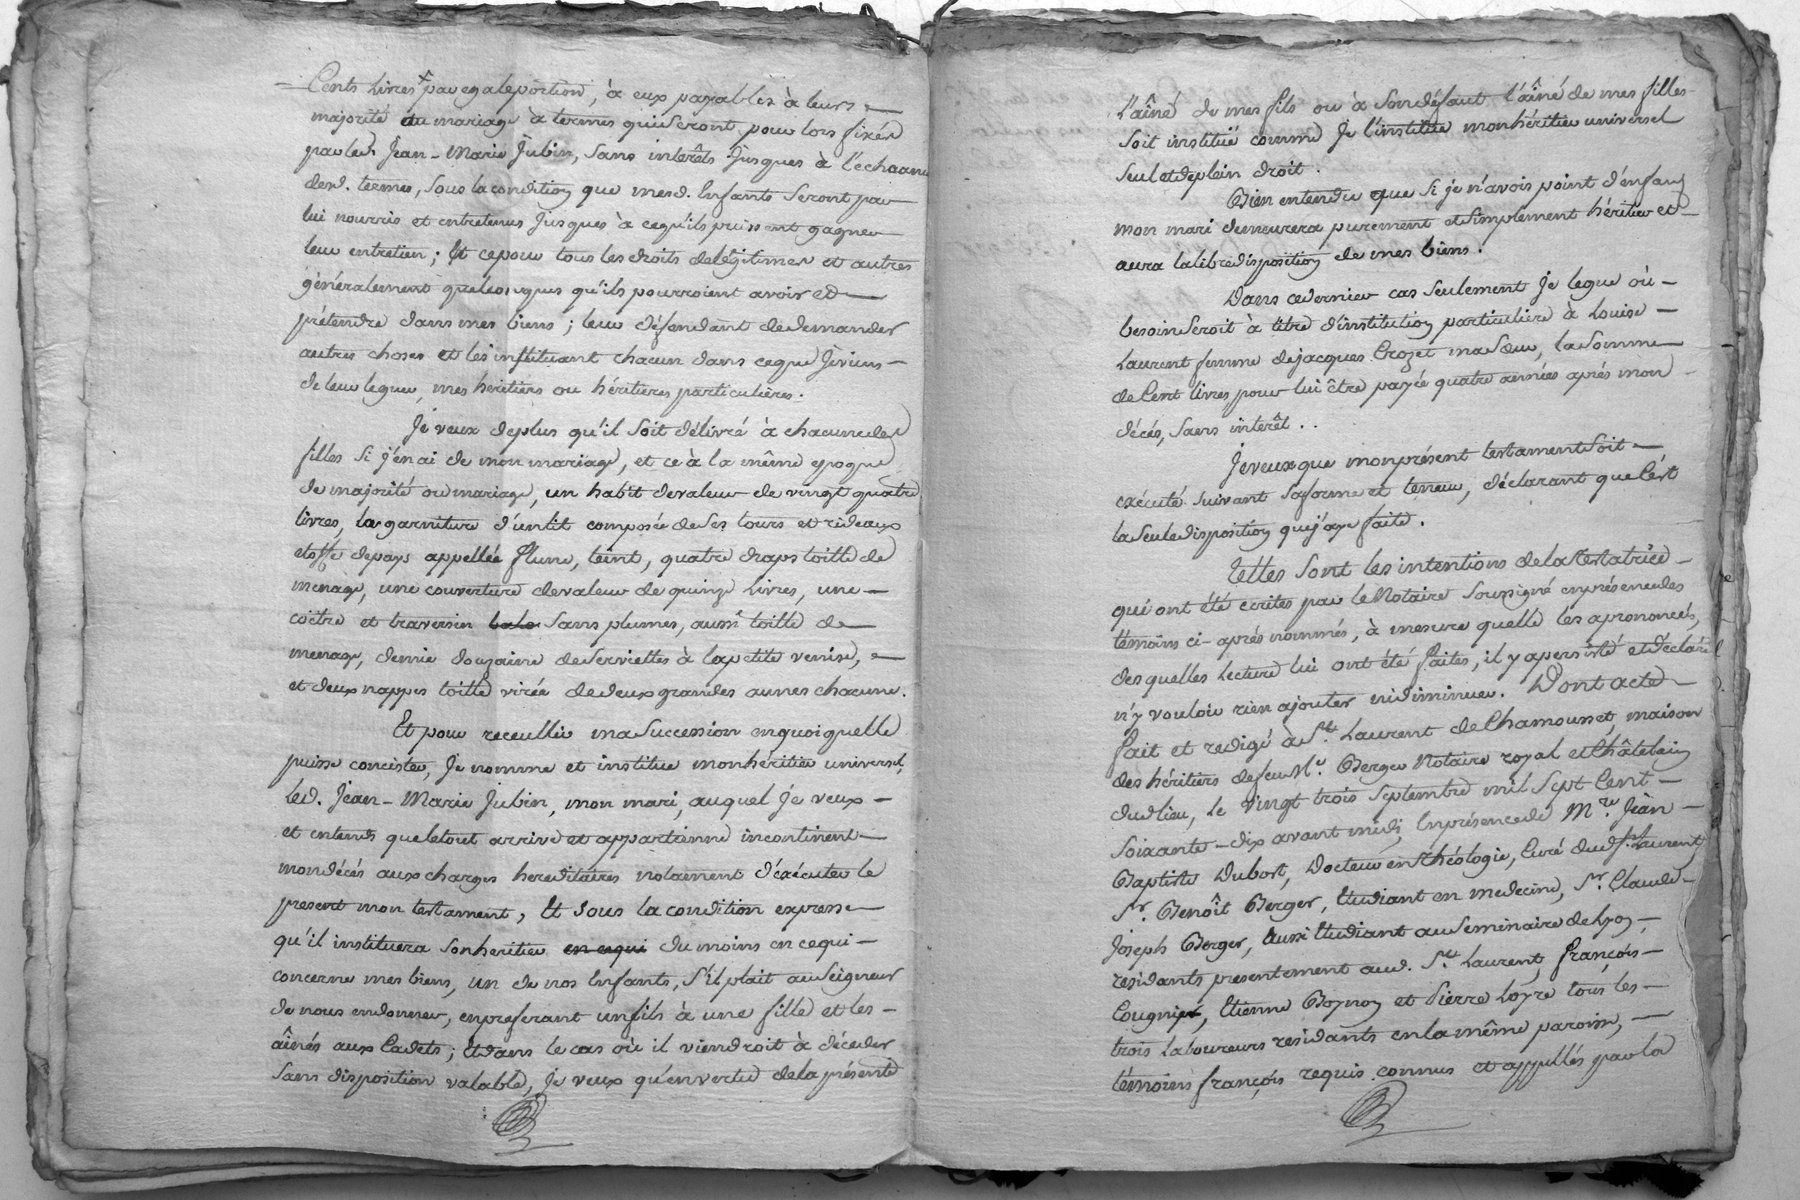 Cents Livres par egale portion, à eux payables à leurs
majorité ou mariage à termes qui seront pour lors fixés
par led. Jean-Marie Jubin, sans interêts jusques à l'echeance
desd. termes, sous la condition que mesd. Enfants seront par
lui nourris et entretenus jusques à cequ'ils puissent gagner
leur entretien; Et cepour tous les droits delégitimes et autres
généralement quelconques qu'ils pourroient avoir et
prétendre dans mes biens; leur défendant dedemander
autres choses et les instituant chacun dans ceque jeviens
de leur leguer, mes heritiers ou héritieres particulières.
Je veux deplus qu'il soit délivré à chacunedes
filles si j'en ai de mon mariage, et ce à la même epoque
de majorité ou mariage, un habit devaleur de vingt quatre
livres, la garniture d'unlit composée de ses tours et rideaux
etoffe depays appellée flune, teint, quatre draps toille de
menage, une couverture devaleur de quinze Livres, une
coëtre et traversin sans plumes, aussi toille de
menage, demie douzaine deserviettes à lapetite venise,
et deux nappes toille virée dedeux grandes aunes chacune.
Et pour receullir ma succession enquoiquelle
puisse concister, Je nomme et institue monhéritier universel,
led. Jean-Marie Jubin, mon mari, auquel je veux
et entends queletout arrive et appartienne incontinent
mondécés aux charges hereditaires notament d'éxécuter le
present mon testament, Et sous la condition expresse
qu'il instituera sonheritier en cequi du moins en cequi
concerne mes biens, un de nos Enfants, s'il plait au Seigneur
de nous endonner, enpreferant unfils à une fille et les
aînés aux Cadets; Et dans le cas où il viendroit à décéder
sans disposition valable, Je veux qu'envertu delaprésente
L'aîné de mes fils ou à sondéfaut l'aîné de mes filles
soit institué comme je l'institue monhéritier universel
seul et deplein droit.
Bien entendu que si je n'avois point d'enfans
mon mari demeurera purement et simplement héritier et
aura la libre disposition de mes biens.
Dans cedernier cas seulement je legue où
besoin seroit à titre d'institution particuliere à Louise
Laurent femme dejacques Crozet ma sœur, la somme
de Cent livres pour lui être payée quatre années aprés mon
décés, sans interêt..
Jeveux que monprésent testament soit
exécuté suivant saforme et teneur, déclarant que C'est
la seule disposition quej'aye faite.
Telles sont les intentions dela testatrice
qui ont été ecrites par le Notaire soussigné enprésencedes
témoins ci-aprés nommés, à mesure quelle les aprononcés,
desquelles Lecture lui ont été faites, il y apersisté et déclaré
n'y vouloir rien ajouter nidiminuer. Dont acte
fait et redigé à St. Laurent de Chamousset, maison
des héritiers defeu Me. Berger Notaire royal et Châtelain
dudlieu, Le vingt trois septembre mil sept Cent
soixante-dix avant midi, Enprésencede Mre. Jean
Baptiste Dubost, Docteur en théologie, Curé dud. St. Laurent,
Sr. Benoît Berger, Etudiant en medecine, Sr. Claude
Joseph Berger, aussi Etudiant au seminaire de Lyon,
residants presentement aud. St. Laurent, François
Cougnier, Etienne Boynon et Pierre Loyre tous les
trois Laboureurs residants enla même paroisse,
témoins françois requis connus et appellés par la